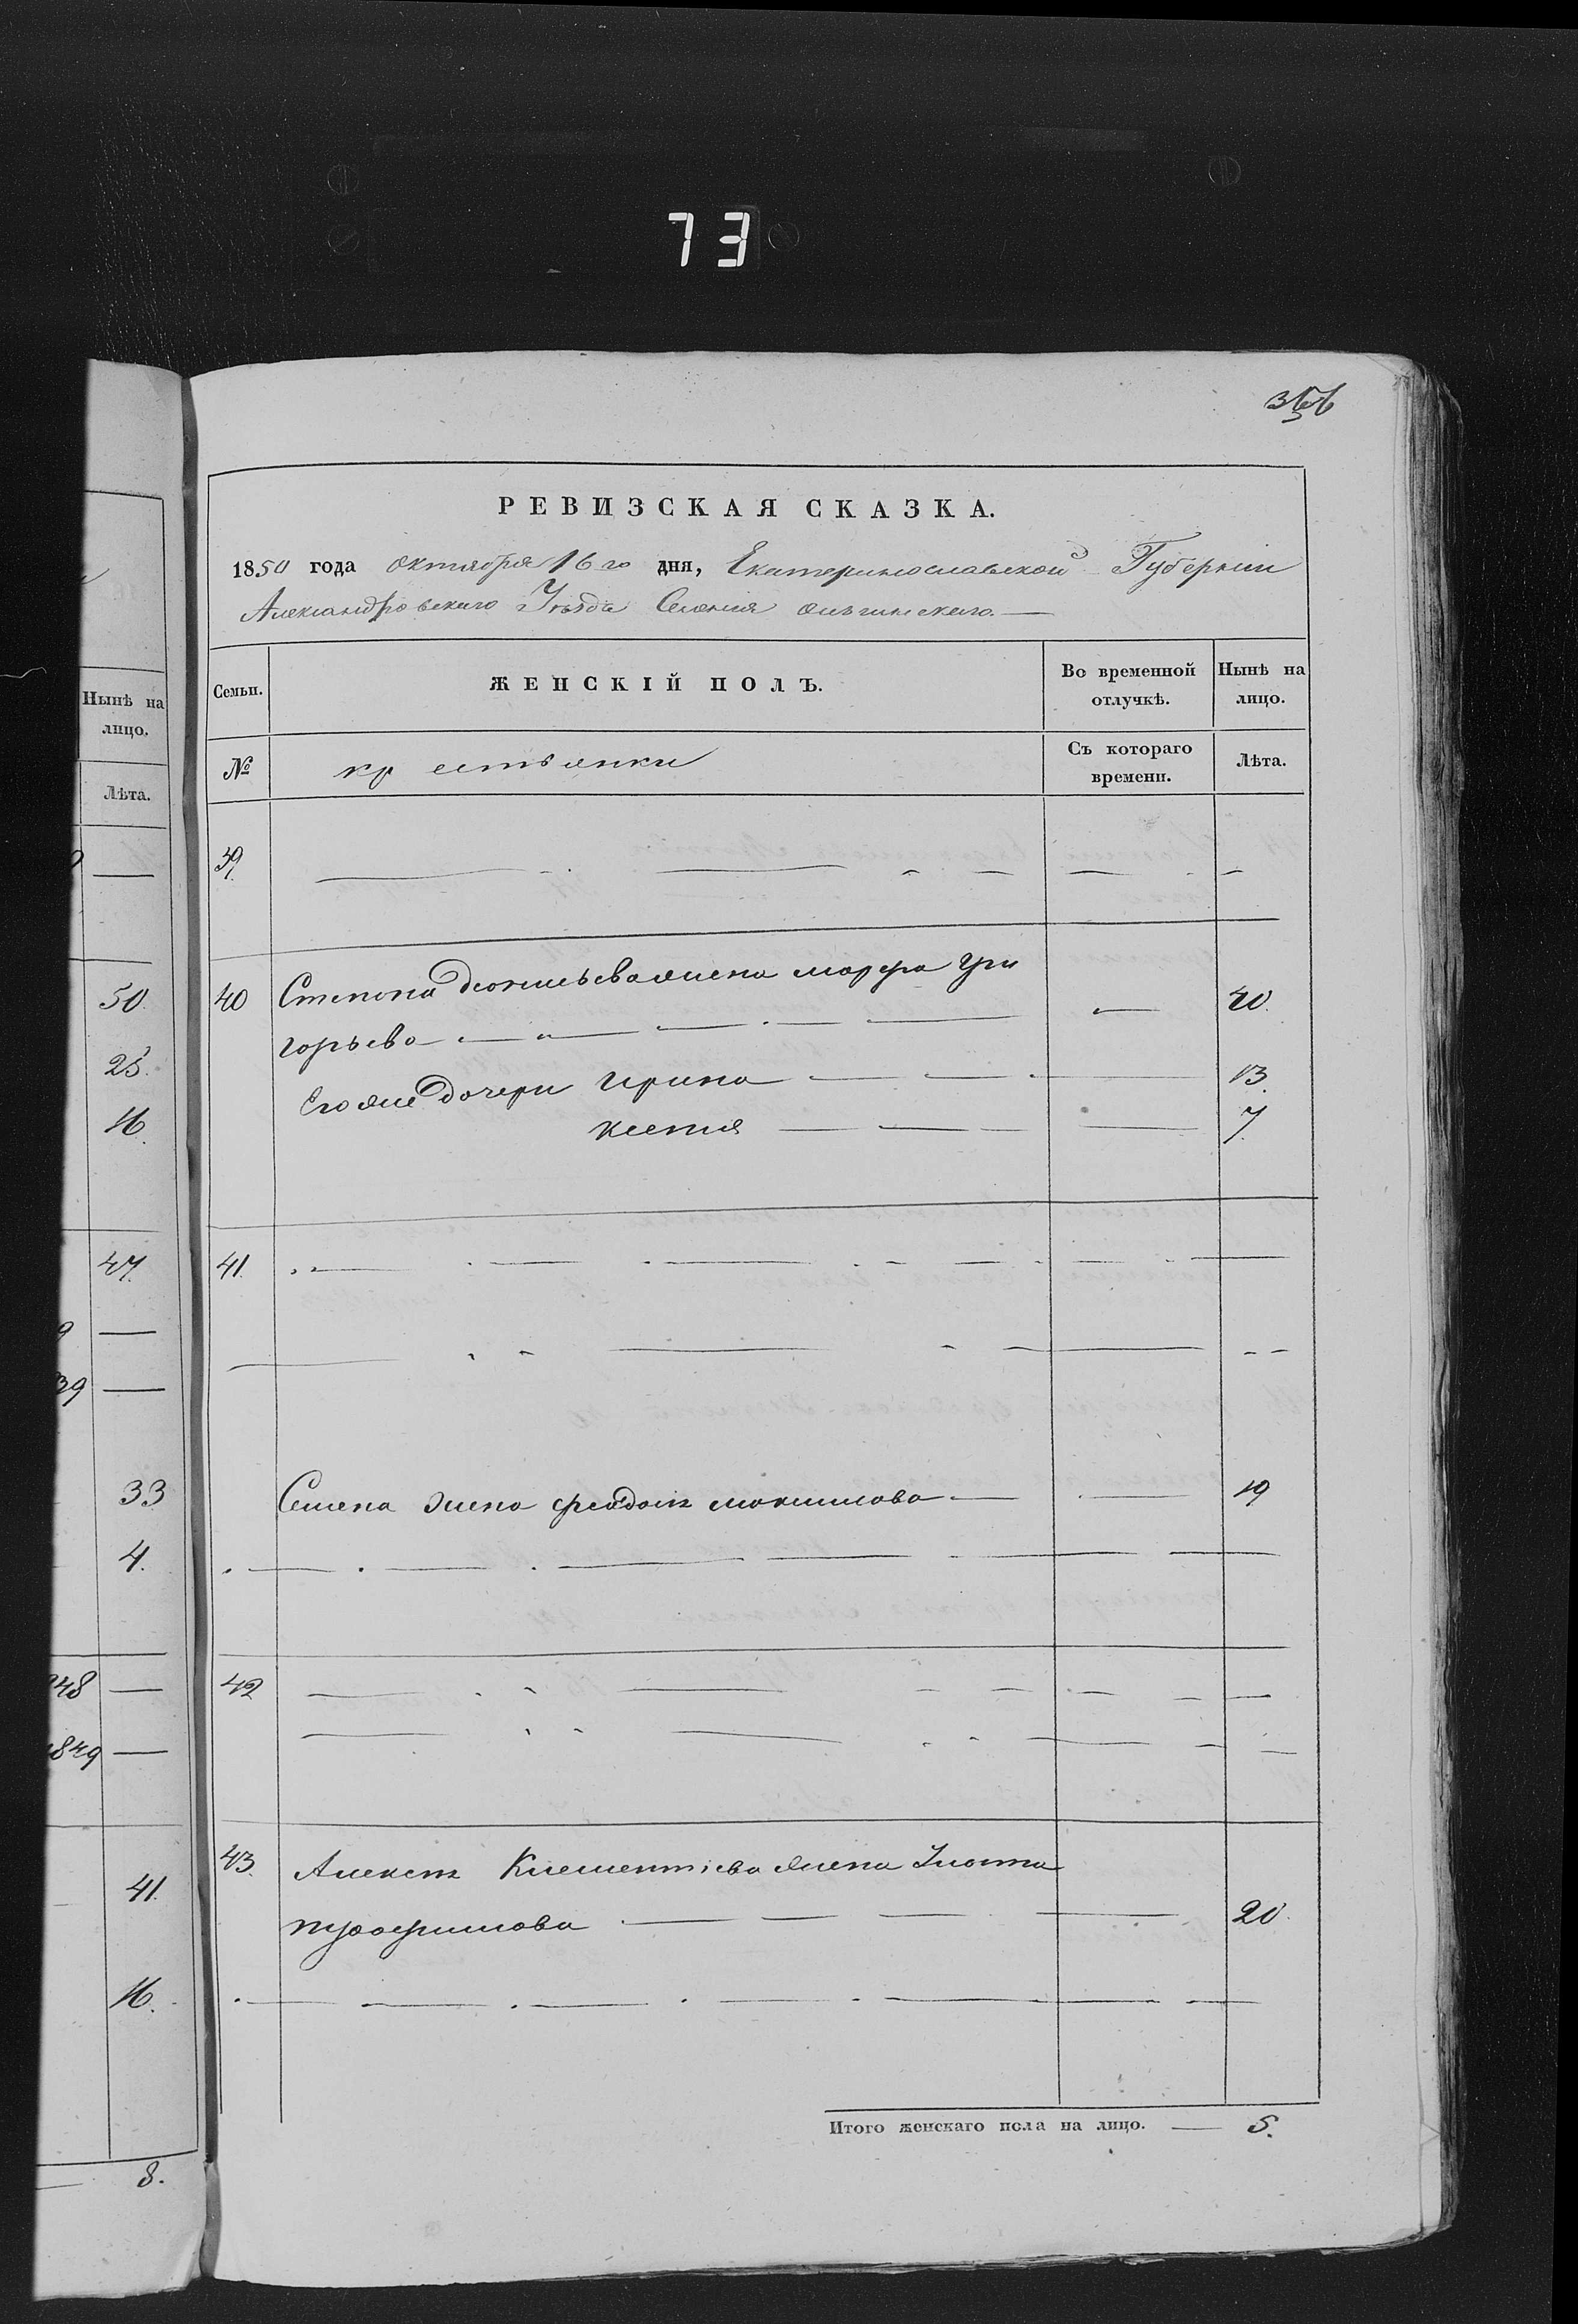 73
РЕВИЗСКАЯ СКАЗКА.
1850 года Октября 16го дня, Екатеринославской Губернии
Александровского Уезда Селения
Нынѣ на лицо.
Лѣта.
50.
25.
16.
47.
9
39
33
4.
848
1849
41.
16.
8.
Семьи. ЖЕНСКІЙ ПОЛЪ. Во временной отлучкѣ. Нынѣ на лицо.
№ крестьянки Съ котораго времени. Лѣта.
39.
40 Степана жена Марфа Гри
горьева 40.
Его же дочери Ирина 13.
Ксения 7.
41.
Семена жена Максимова 19
42
43. Клементиева жена
20.
Итого женскаго пола на лицо. 5.